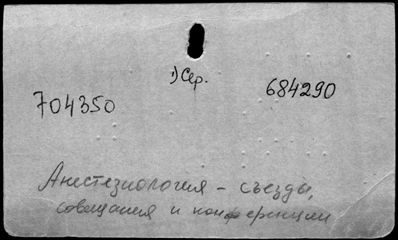 1) Сер.
704350
684290
Анестезиология - съезды,
совещания и конференции